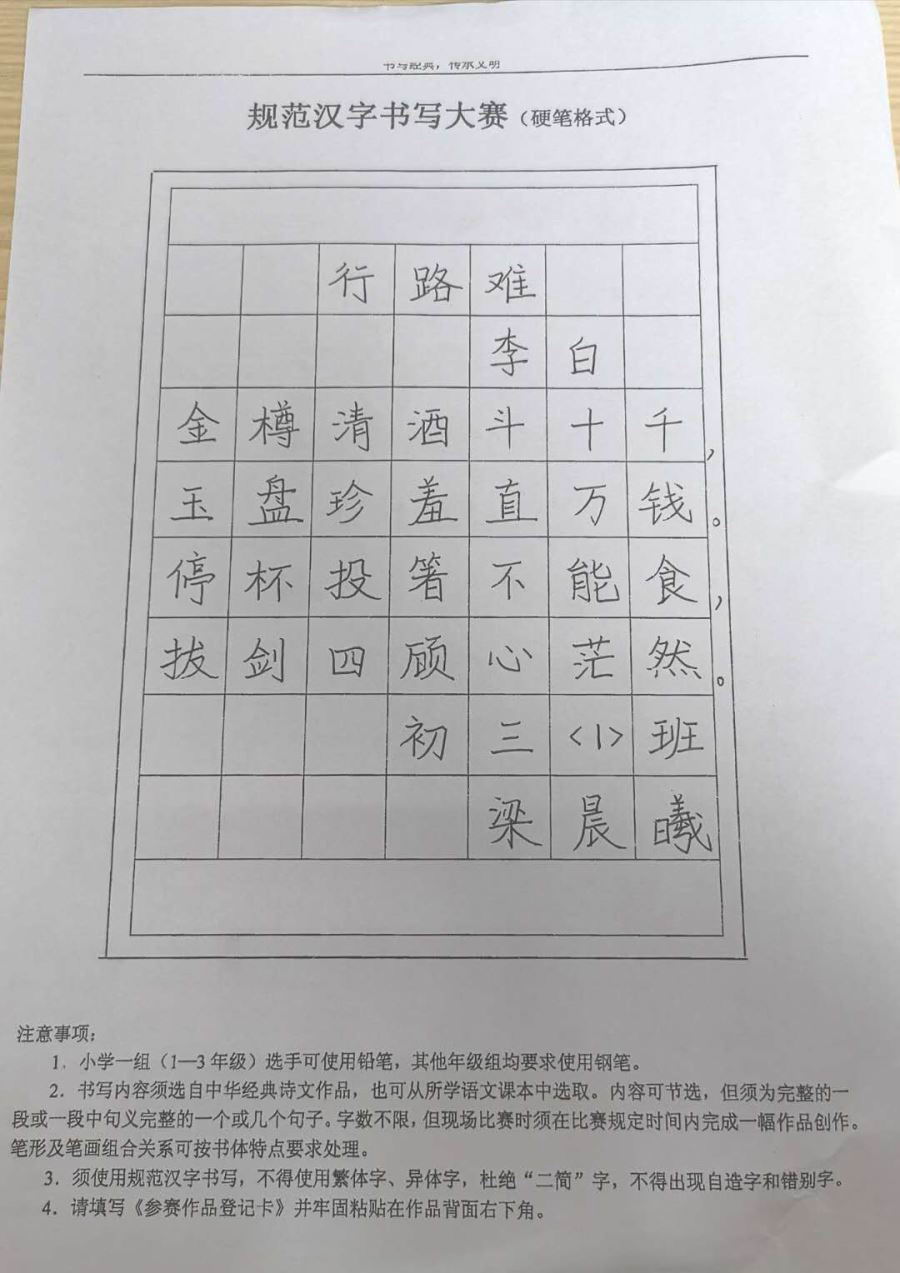 书写经典，传承文明
规范汉字书写大赛（硬笔格式）
行路难
李白
金樽清酒斗十千，
玉盘珍羞直万钱。
停杯投箸不能食，
拔剑四顾心茫然。
初三<1>班
梁晨曦
注意事项：
1．小学一组（1—3年级）选手可使用铅笔，其他年级组均要求使用钢笔。
2．书写内容须选自中华经典诗文作品，也可从所学语文课本中选取。内容可节选，但须为完整的一
段或一段中句义完整的一个或几个句子。字数不限，但现场比赛时须在比赛规定时间内完成一幅作品创作。
笔形及笔画组合关系可按书体特点要求处理。
3．须使用规范汉字书写，不得使用繁体字、异体字，杜绝“二简”字，不得出现自造字和错别字。
4．请填写《参赛作品登记卡》并牢固粘贴在作品背面右下角。